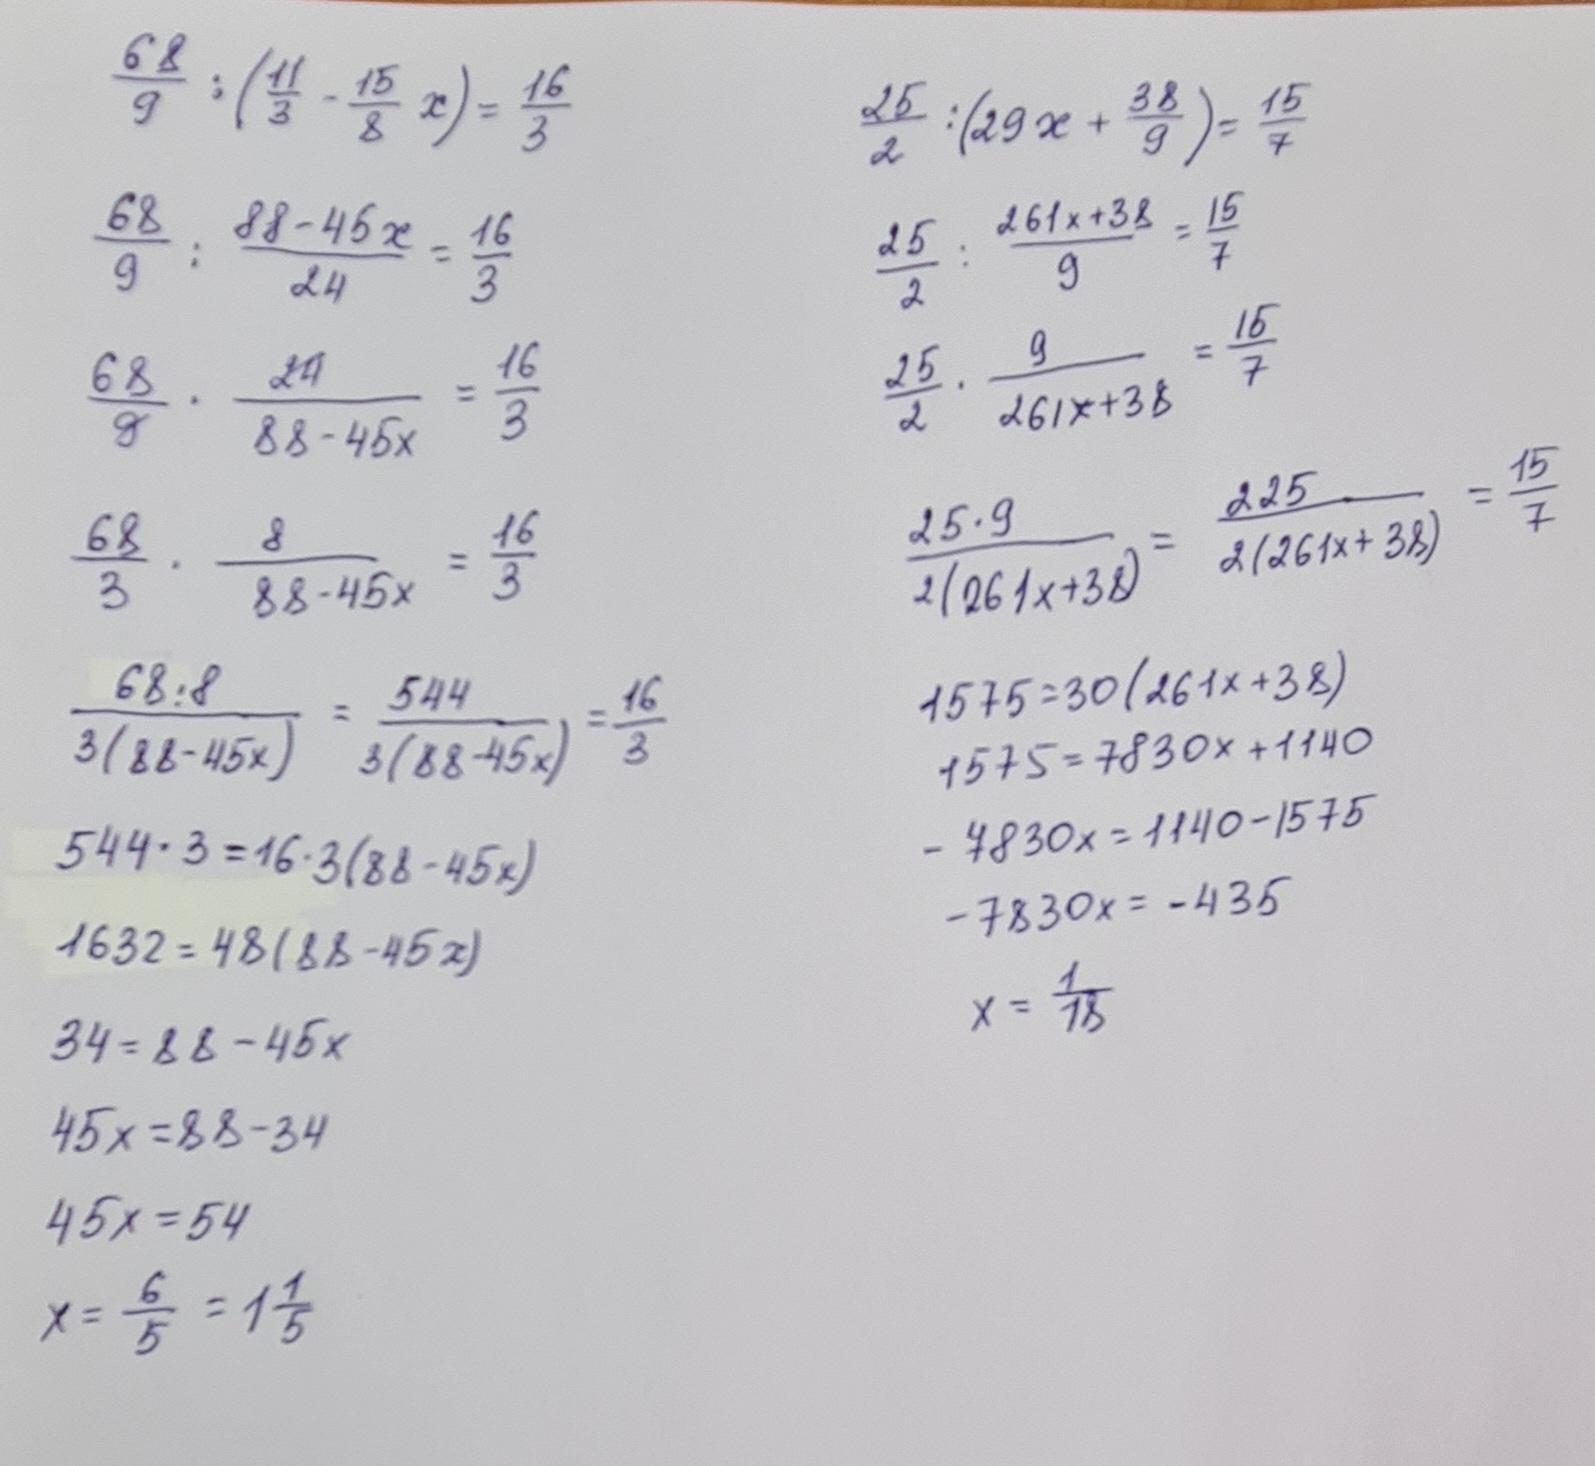 68/9 : (11/3 - 15/8 x) = 16/3
68/9 : (88-45x)/24 = 16/3
68/9 · 24/(88-45x) = 16/3
68/3 · 8/(88-45x) = 16/3
68:8/3(88-45x) = 544/3(88-45x) = 16/3
544·3=16·3(88-45x)
1632=48(88-45x)
34=88-45x
45x=88-34
45x=54
x= 6/5 = 1 1/5
25/2 : (29x + 38/9) = 15/7
25/2 : (261x+38)/9 = 15/7
25/2 · 9/(261x+38) = 15/7
25·9/2(261x+38) = 225/2(261x+38) = 15/7
1575=30(261x+38)
1575=7830x+1140
-7830x=1140-1575
-7830x=-435
x = 1/18